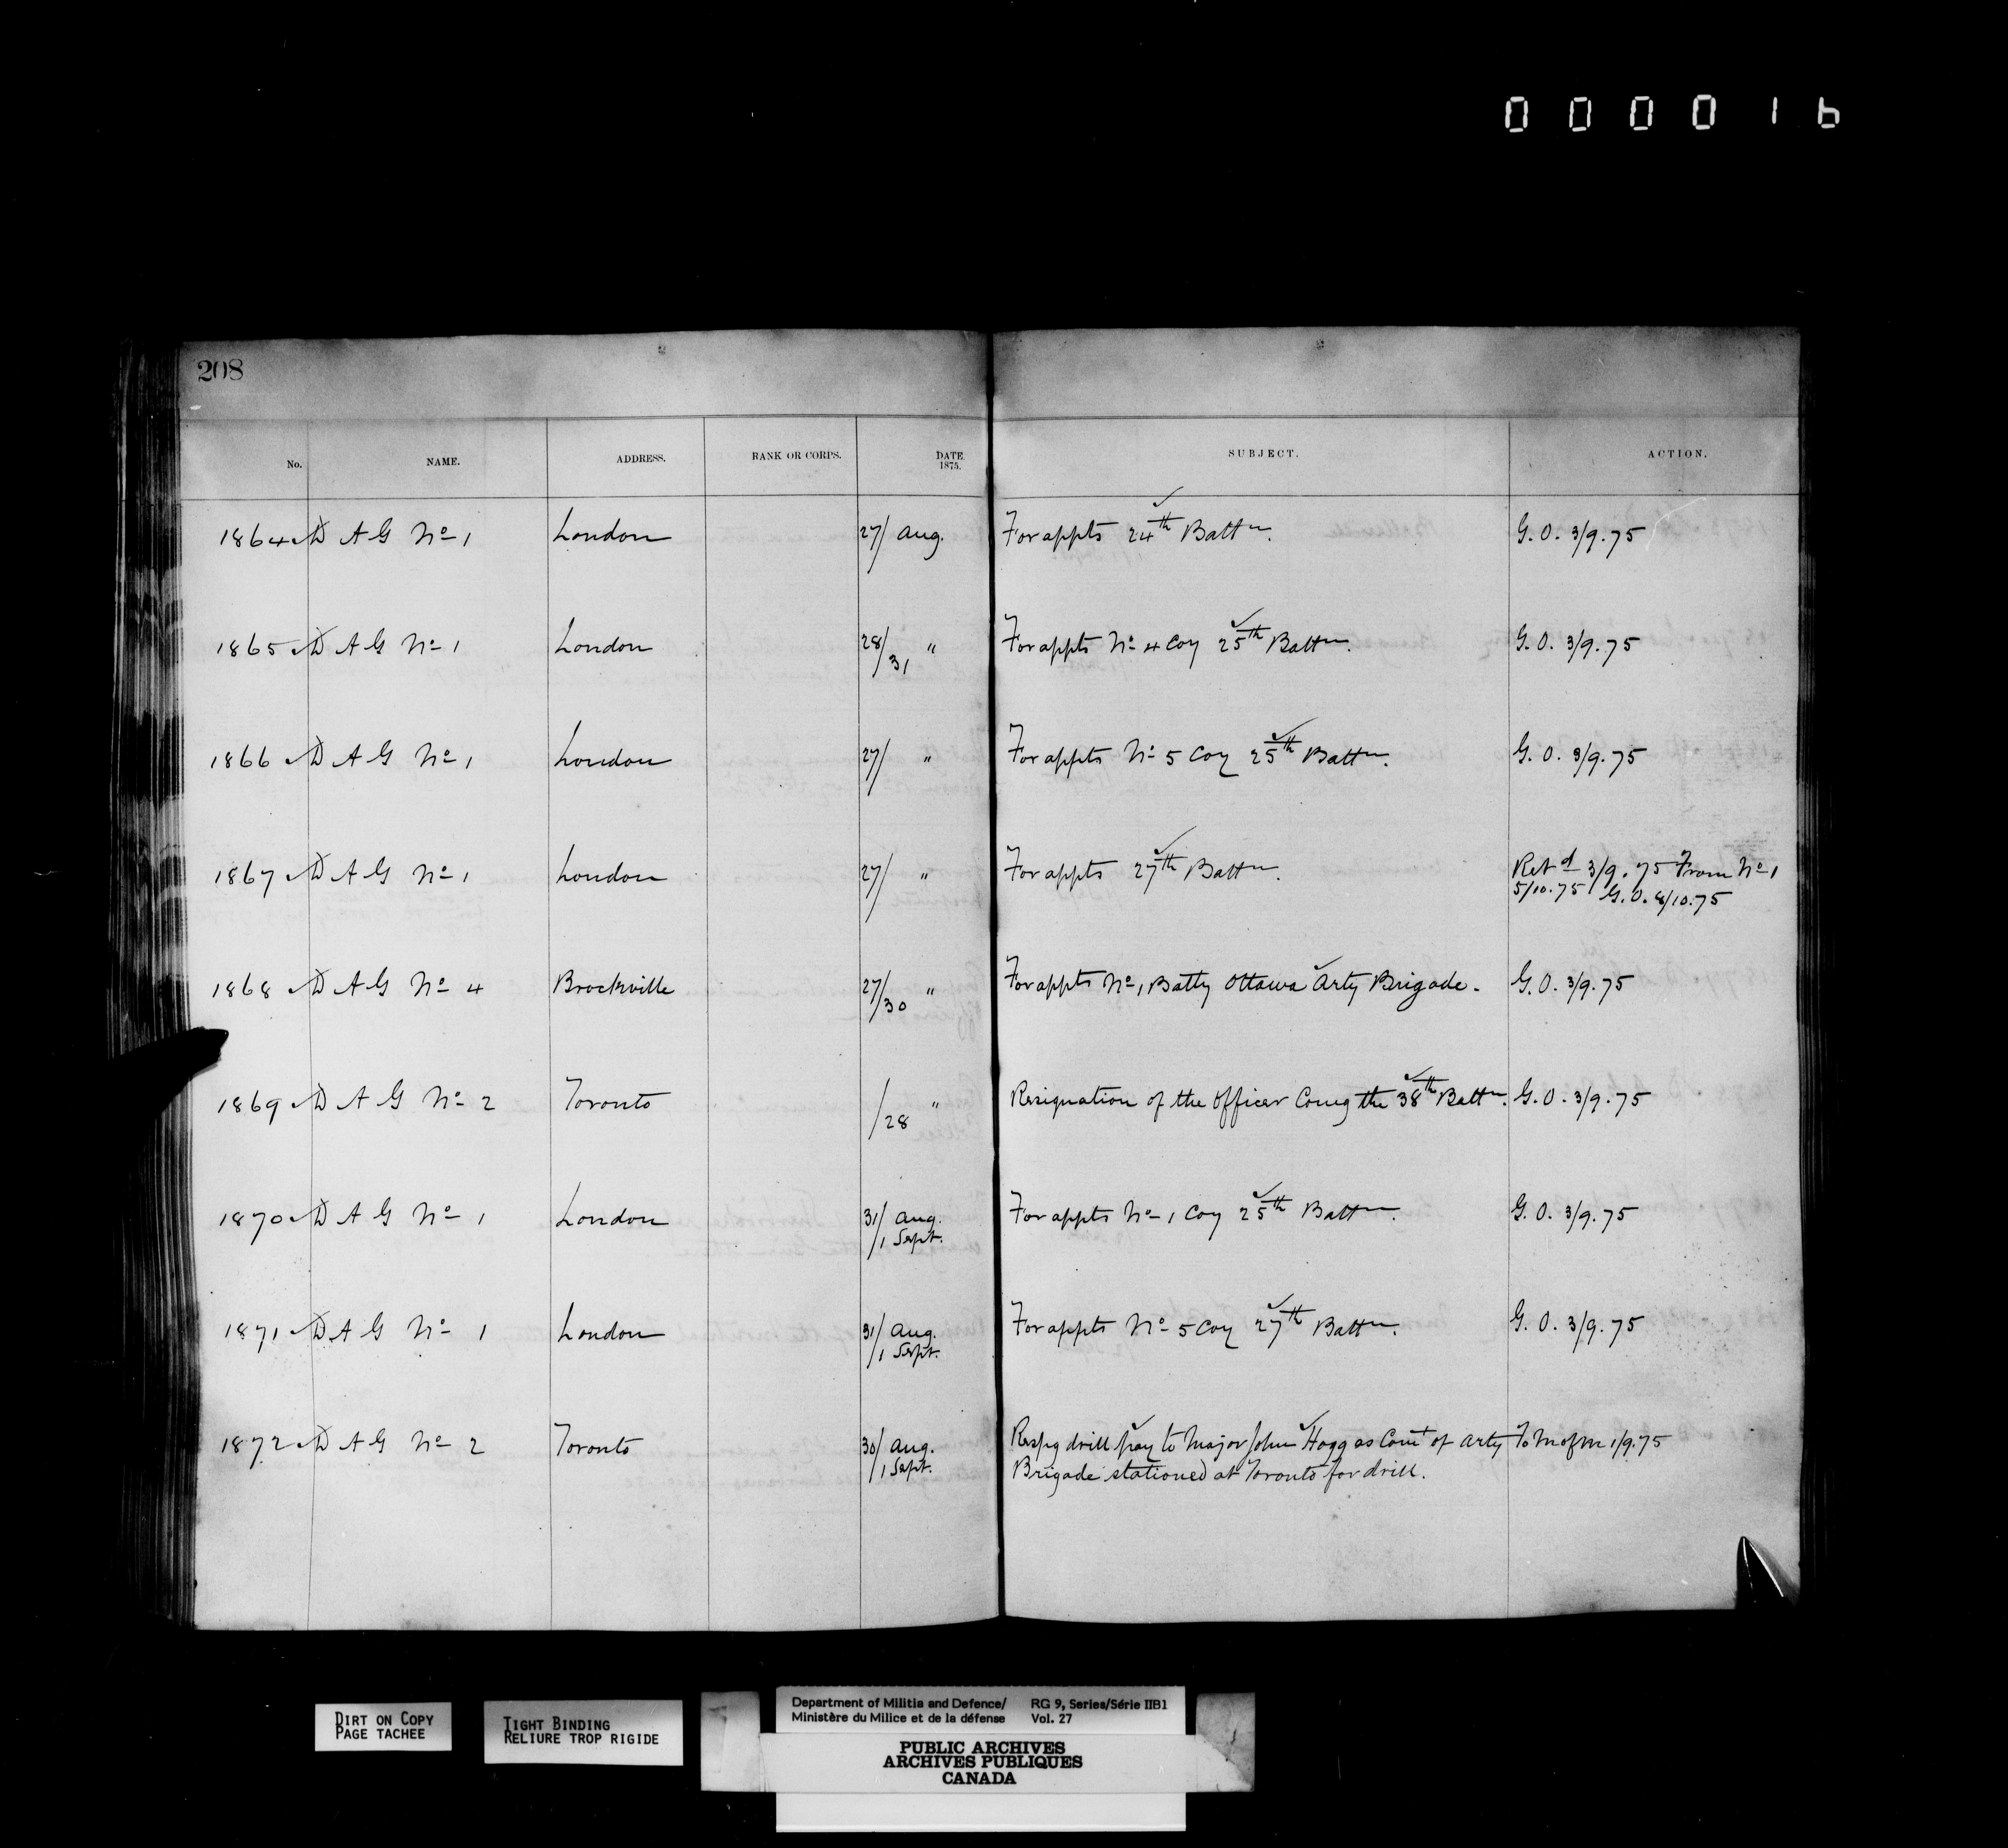 000016
208
No. NAME. ADDRESS. RANK OR CORPS. DATE 1875. SUBJECT. ACTION.
1864 D A G No 1 London 27/ Aug. For appts 24th Battn. G. O. 3/9.75
1865 D A G No 1 London 28/31 " For appts No 4 Coy 25th Battn. G. O. 3/9.75
1866 D A G No 1 London 27/ " For appts No 5 Coy 25th Battn. G. O. 3/9.75
1867 D A G No 1 London 27/ " For appts 27th Battn. Retd 3/9.75 From No 1
5/10.75 G. O. 8/10.75
1868 D A G No 4 Brockville 27/30 " For appts No 1 Batty Ottawa Arty Brigade. G. O. 3/9.75
1869 D A G No 2 Toronto /28 " Resignation of the Officer Comg the 38th Battn. G. O. 3/9.75
1870 D A G No 1 London 31/ Aug. For appts No 1 Coy 25th Battn. G. O. 3/9.75
/1 Sept.
1871 D A G No 1 London 31/ Aug. For appts No 5 Coy 27th Battn. G. O. 3/9.75
/1 Sept.
1872 D A G No 2 Toronto 30/ Aug. Respg drill pay to Major John Hogg as Comt of Arty To M of M 1/9.75
/1 Sept. Brigade stationed at Toronto for drill.
DIRT ON COPY
PAGE TACHEE
TIGHT BINDING
RELIURE TROP RIGIDE
Department of Militia and Defence/ RG 9, Series/Série IIB1
Ministère du Milice et de la défense Vol. 27
PUBLIC ARCHIVES
ARCHIVES PUBLIQUES
CANADA